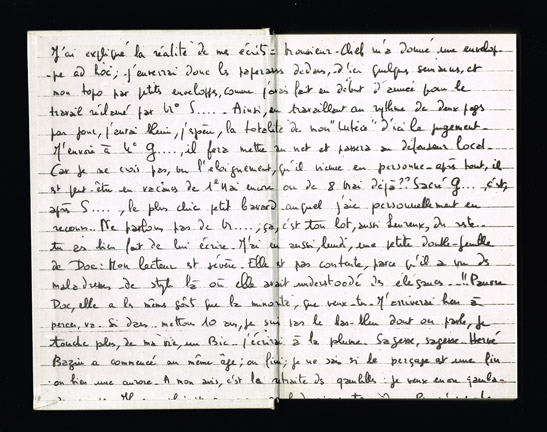 J'ai expliqué la réalité de mes écrits = Monsieur-Chef m'a donné une envelop-
pe ad hoc ; j'enverrai donc les paperasses dedans, d'ici quelques semaines, et
mon topo par petites enveloppes, comme j'avais fait en début d'année pour le
travail réclamé par Me S.... - Ainsi, en travaillant au rythme de deux pages
par jour, j'aurai fini, j'espère, la totalité de mon d'ici le jugement.
J'envoie à Me G...., il fera mettre au net et passera au défenseur local.
Car je ne crois pas, vu l'éloignement, qu'il vienne en personne - après tout, il
est peut-être en vacances de 1er Mai encore ou de 8 Mai déjà ?? Sacré G... c'est,
après S...., le plus chic petit bavard auquel j'aie personnellement eu
recours. Ne parlons pas de M.... ; ça, c'est ton lot, aussi heureux, du reste..
tu as bien fait de lui écrire. J'ai eu aussi, lundi, une petite double-feuille
de Doc : Mon lecteur est sévère. Elle est pas contente, parce qu'il a vu des
maladresses de style là où elle avait understoodé des élégances..."Pauvre
Doc, elle a les mêmes goûts que la minorité, que veux-tu - J'arriverai bien à
percer, va. Si dans.. mettons 10 ans, je suis pas le bas-bleu dont on parle, je
touche plus, de ma vie, un Bic - j'écrirai à la plume. Sagesse, sagesse - Hervé
Bazin a commencé au même âge ; ou fini ; je ne sais si le perçage est une fin
ou bien une aurore. A mon avis, c'est la retraite des : je veux encore